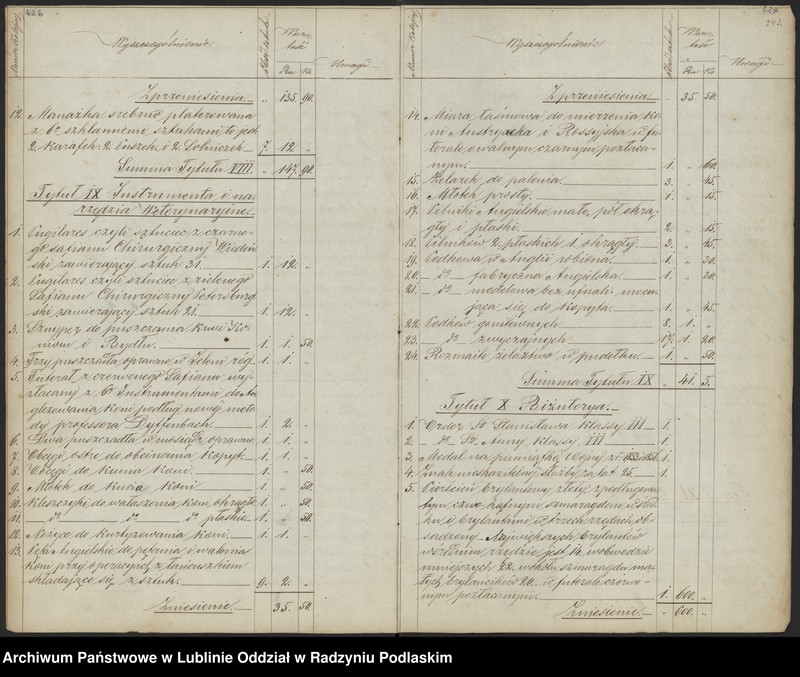 626
Numer Kolejny
Wyszczególnienie
Ilość sztuk
War-
tość
Rs K.
Uwagi
Z przeniesienia „ 135. 90.
12. Manażka srebrno platerowana
z 6 szklannemi sztukami to jest
2. Karafek 2. buszek i 2. Solniczek 7. 12. „
Summa Tytułu VIII. „ 147. 90.
Tytuł IX Instrumenta i na-
rzędzia Weterynaryine.
1. czyli sztuciec z czarne-
go safianu Chirurgiczny Wiedeń-
ski zawierający sztuk 31. 1. 12. „
2. czyli sztuciec z zielonego
Safianu Chirurgiczny Petersburg-
ski zawierający sztuk 21. 1. 12. „
3. Sznyper do puszczania krwi Ko-
niom i Bydłu. 1. 1. 50.
4. Trzy puszczadła oprawne w Jeleni róg. 1. 1. „
5. Futerał z czerwonego Safianu wy-
złacany z 6 Instrumentami do An-
glezowania koni podług nowej meto-
dy professora Dyffenbach. 1. 2. „
6. Dwa puszczadła w mosiądz oprawne 1. 1. „
7. Obcęgi ostre do obcinania kopyt. 1. 1. „
8. Obcęgi do kucia koni. 1. „ 50.
9. Młotek do kucia koni 1. „ 50.
10. Kleszczyki do wałaszenia koni okrągłe 1. „ 50.
11. do do do płaskie 1. „ 50.
12. Nożyce do kurtyzowania koni. 1. 1. „
13. Pęta Angielskie do pętania i walenia
koni przy operacyach z łańcuszkiem
składające się z sztuk. 9. 2. „
Zniesienie 35. 50.
627
243.
Numer Kolejny
Wyszczególnienie
Ilość sztuk
War-
tość
Rs K.
Uwagi
Z przeniesienia „ 35. 50.
14. Miara taśmowa do mierzenia ko-
ni Austryacka i Rossyjska w fu-
terale owalnym czarnym pozłaca-
nym. 1. „ 60.
15. Żelazek do palenia. 3. „ 45.
16. Młotek prosty. 1. „ 15.
17. Pilniki Angielskie małe, pół okrą-
gły i płaski. 2. „ 15.
18. Pilników 2. płaskich 1. okrągły. 3. „ 45.
19. Podkowa w Anglii robiona. 1. „ 30.
20. do fabryczna Angielska. 1. „ 20.
21. do modelowa bez ufnali mocu-
jąca się do kopyta. 1. „ 45.
22. Podków 8. 1. „
23. do zwyczajnych 17. 1. 20.
24. Rozmaite żelaztwo w pudełku. 1. „ 50.
Summa Tytułu IX „ 41. 5.
Tytuł X Biżuterya.
1. Order So Stanisława klassy III 1.
2. do So Anny klassy III 1.
3. Medal na pamiątkę Wojny zr: 1853 i 1856. 1.
4. Znak nieskazitelnej służby za lat 25. 1.
5. Pierścień brylantowy złoty, z podługowa-
tym czworokątnym szmaragdem w środ-
ku i brylantami w trzech rzędach ob-
sadzony. Największych brylantów
w szelnim rzędzie jest 14. w obwodzie
mniejszych 22. w około szmaragdu ma-
łych brylancików 20. w futerale czerwo-
nym pozłacanym. 1. 600. „
Zniesienie „ 600. „
Archiwum Państwowe w Lublinie Oddział w Radzyniu Podlaskim